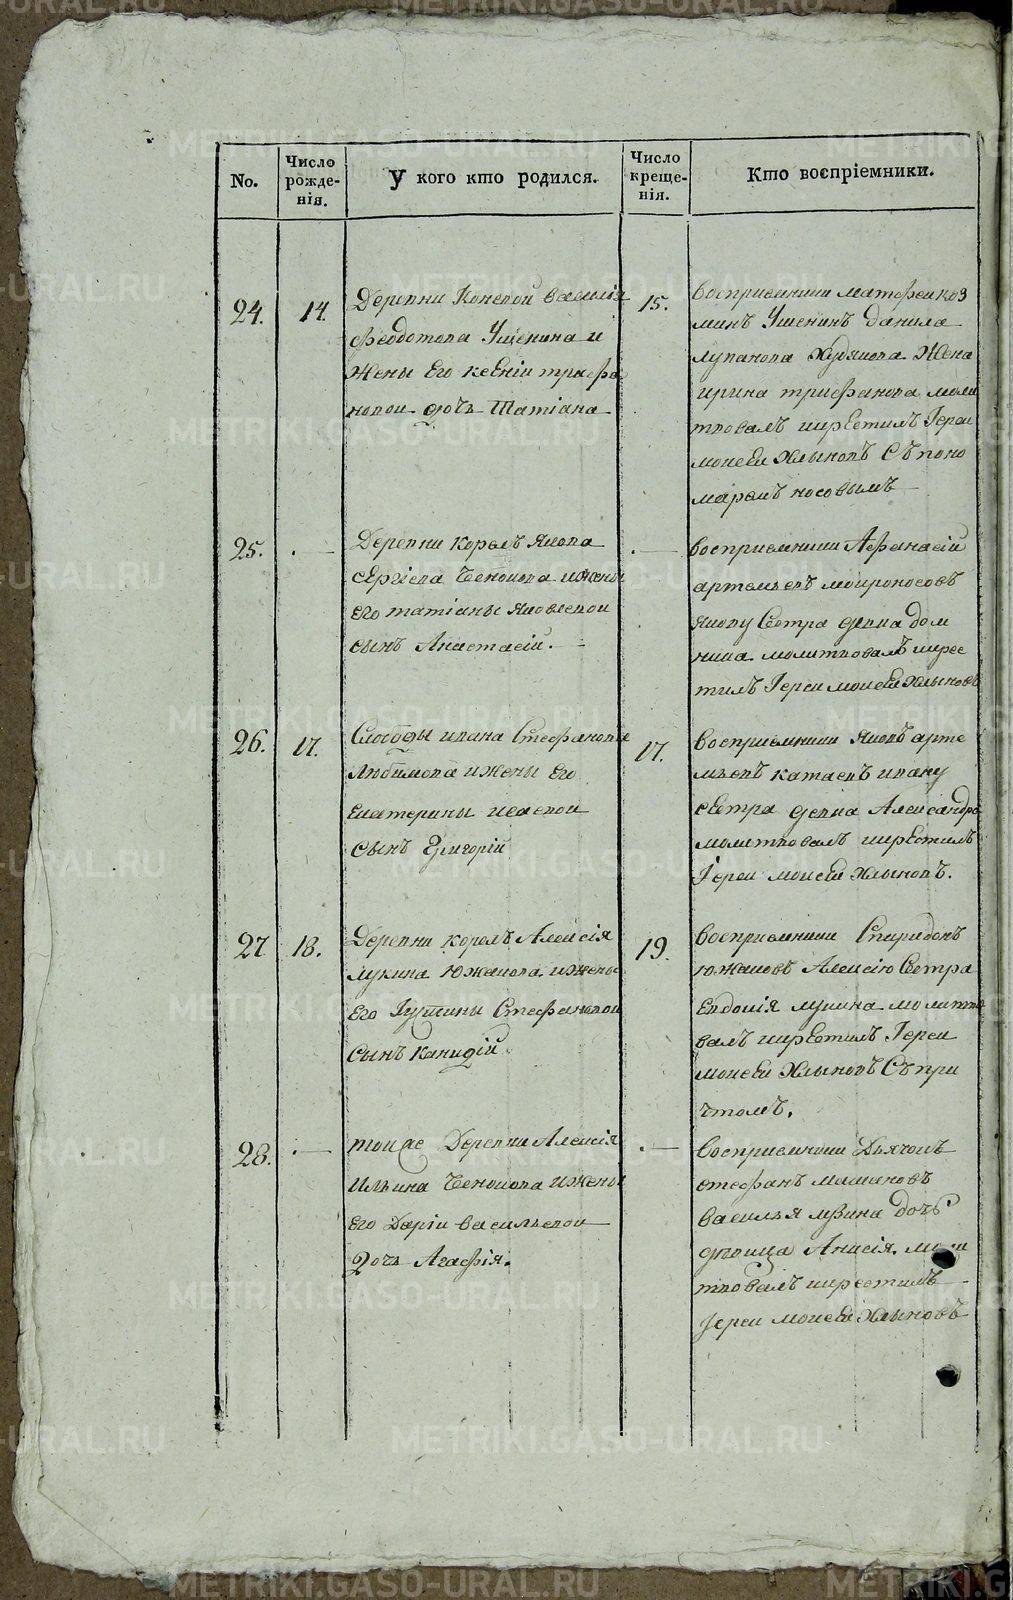 No.
Число рожде-нія.
У кого кто родился.
Число креще-нія.
Кто воспріемники.
24.
14.
Деревни Коневой василія
феодотова Ушенина и
жены Его ксеніи трифа
новой дочь Татіана
15.
воспріемники матфеи коз
минъ Ушенинъ данила
лупанова Худякова Жена
ирина трифанова моли
твовалъ икрестилъ Іереи
моисеи Хлыновъ Съ поно
маремъ носовымъ
25.
Деревни корелъ Якова
сергіева Ченокова ижены
Его татіаны Яковлевой
сынъ Анастасіи.
воспріемники Афанасіи
артемьевъ
Якову Сестра девка дом
ника молитвовалъ икрес
тилъ Іереи моисеи Хлыновъ
26.
17.
Слободы ивана Стефанова
Любимова ижены Его
Екатерины исаевой
сынъ Григоріи
17.
Воспріемники Яковъ арте
мьевъ катаевъ ивану
сестра девка Александра
молитвовалъ икрестилъ
Іереи моисеи Хлыновъ.
27
18.
Деревни корелъ Алексія
лукина Южакова ижены
Его Іустины Стефановой
Сынъ Канидіи
19.
воспріемники Спиридонъ
южаковъ Алексію Сестра
Евдокія лукина молитво
валъ икрестилъ Іереи
моисеи Хлыновъ Съ при
чтомъ.
28.
тои же Деревни Алексія
Ильина Ченокова ижены
Его Даріи васильевои
дочь Агафія.
воспріемники Дьячекъ
стефанъ
василья дочь
девица Анисія.
твовалъ икрестилъ
Іереи моисеи Хлыновъ
METRIKI.GASO-URAL.RU